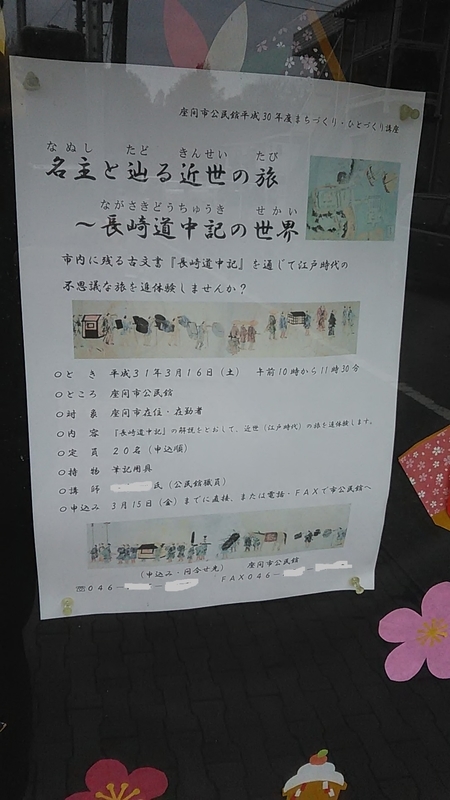 座間市公民館平成30年度まちづくり・ひとづくり講座
なぬし たど きんせい たび
名主と辿る近世の旅
ながさきどうちゅうき せかい
～長崎道中記の世界
市内に残る古文書『長崎道中記』を通じて江戸時代の
不思議な旅を追体験しませんか?
○とき 平成31年3月16日(土) 午前10時から11時30分
○ところ 座間市公民館
○対象 座間市在住・在勤者
○内容 『長崎道中記』の解説をとおして、近世(江戸時代)の旅を追体験します。
○定員 20名(申込順)
○持物 筆記用具
○講師 氏(公民館職員)
○申込み 3月15日(金)までに直接、または電話・FAXで市公民館へ
(申込み・問合せ先) 座間市公民館
☎046- - FAX046- -